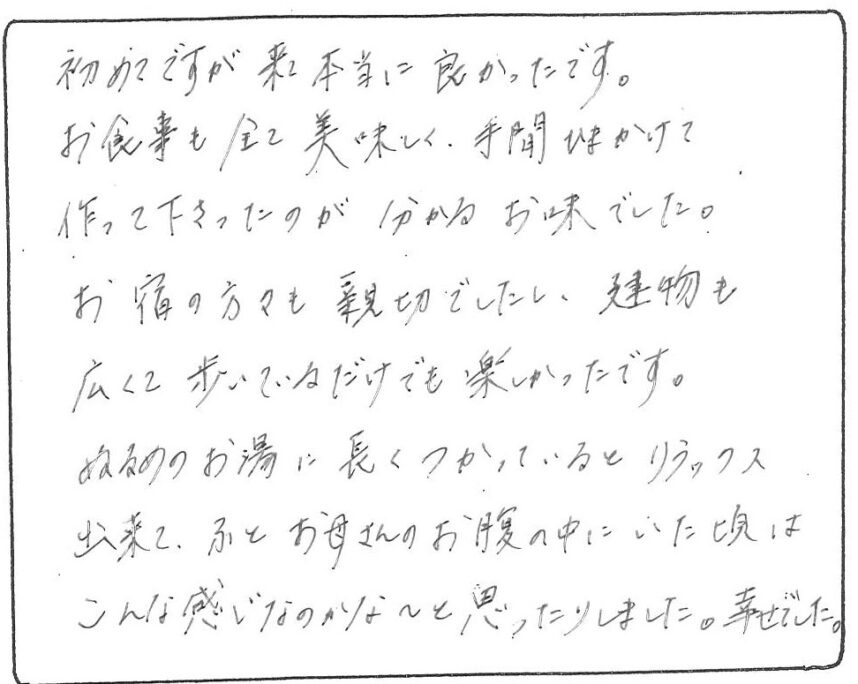 初めてですが来て本当に良かったです。
お食事も全て美味しく、手間ひまかけて
作って下さったのが分かるお味でした。
お宿の方々も親切でしたし、建物も
広くて歩いているだけでも楽しかったです。
ぬるめのお湯に長くつかっているとリラックス
出来て、ふとお母さんのお腹の中にいた頃は
こんな感じなのかな〜と思ったりしました。幸せでした。